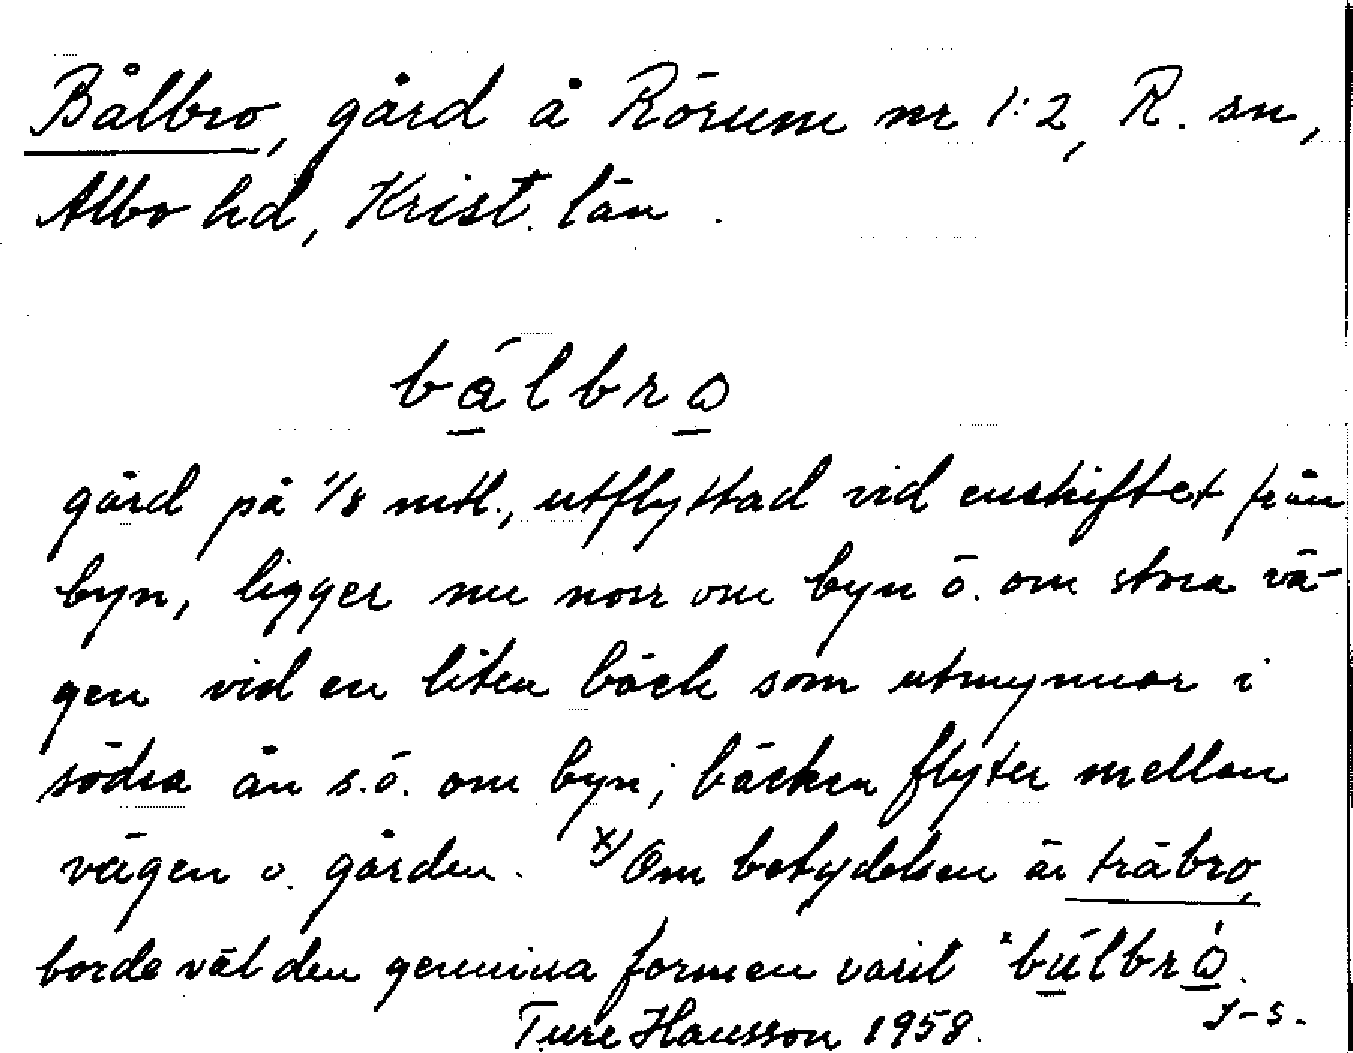 Bålbro, gård å Rörum nr 1:2, R. sn,
Albo hd, Krist. län.
bálbro
gård på 1/8 mtl., utflyttad vid enskiftet från
byn, ligger nu norr om byn ö. om stora vä-
gen vid en liten bäck som utmynnar i
södra ån s.ö. om byn; bäcken flyter mellan
vägen o. gården. x) Om betydelsen är träbro,
borde väl den genuina formen varit *búlbrò.
Ture Hansson 1958. J-s.